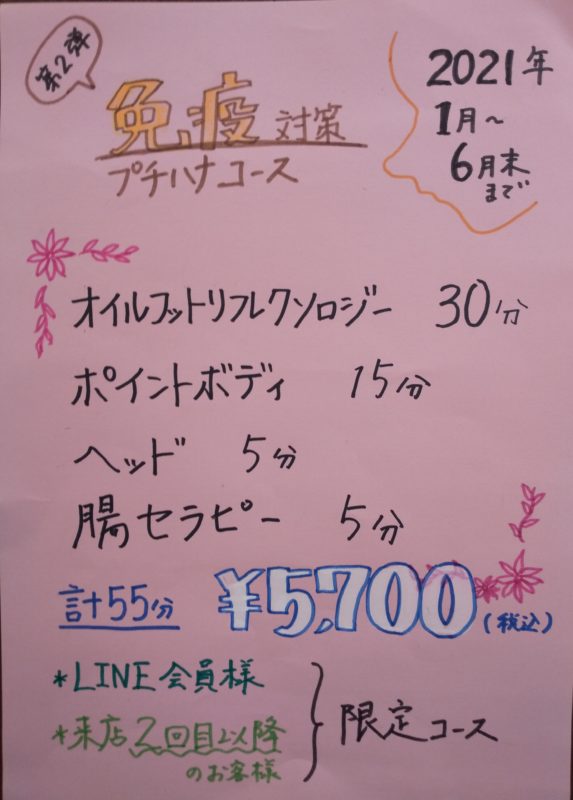 第2弾
免疫対策
プチハナコース
2021年
1月~
6月末
まで
オイルフットリフレクソロジー 30分
ポイントボディ 15分
ヘッド 5分
腸セラピー 5分
計55分 ¥5,700(税込)
*LINE会員様
*来店2回目以降
のお客様
限定コース